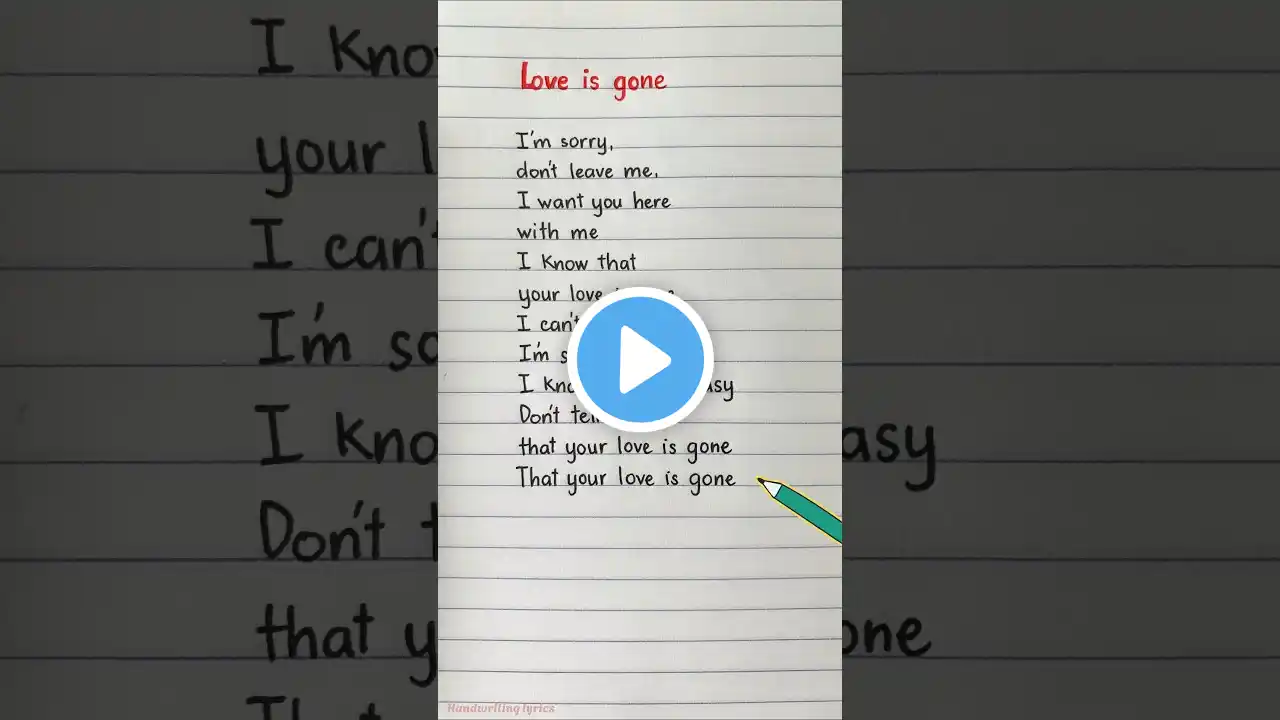 Love is gone
I'm sorry,
don't leave me,
I want you here
with me
I know that
your love
I can't
I'm
I
Don't
that your love is gone
That your love is gone
Handwriting lyrics